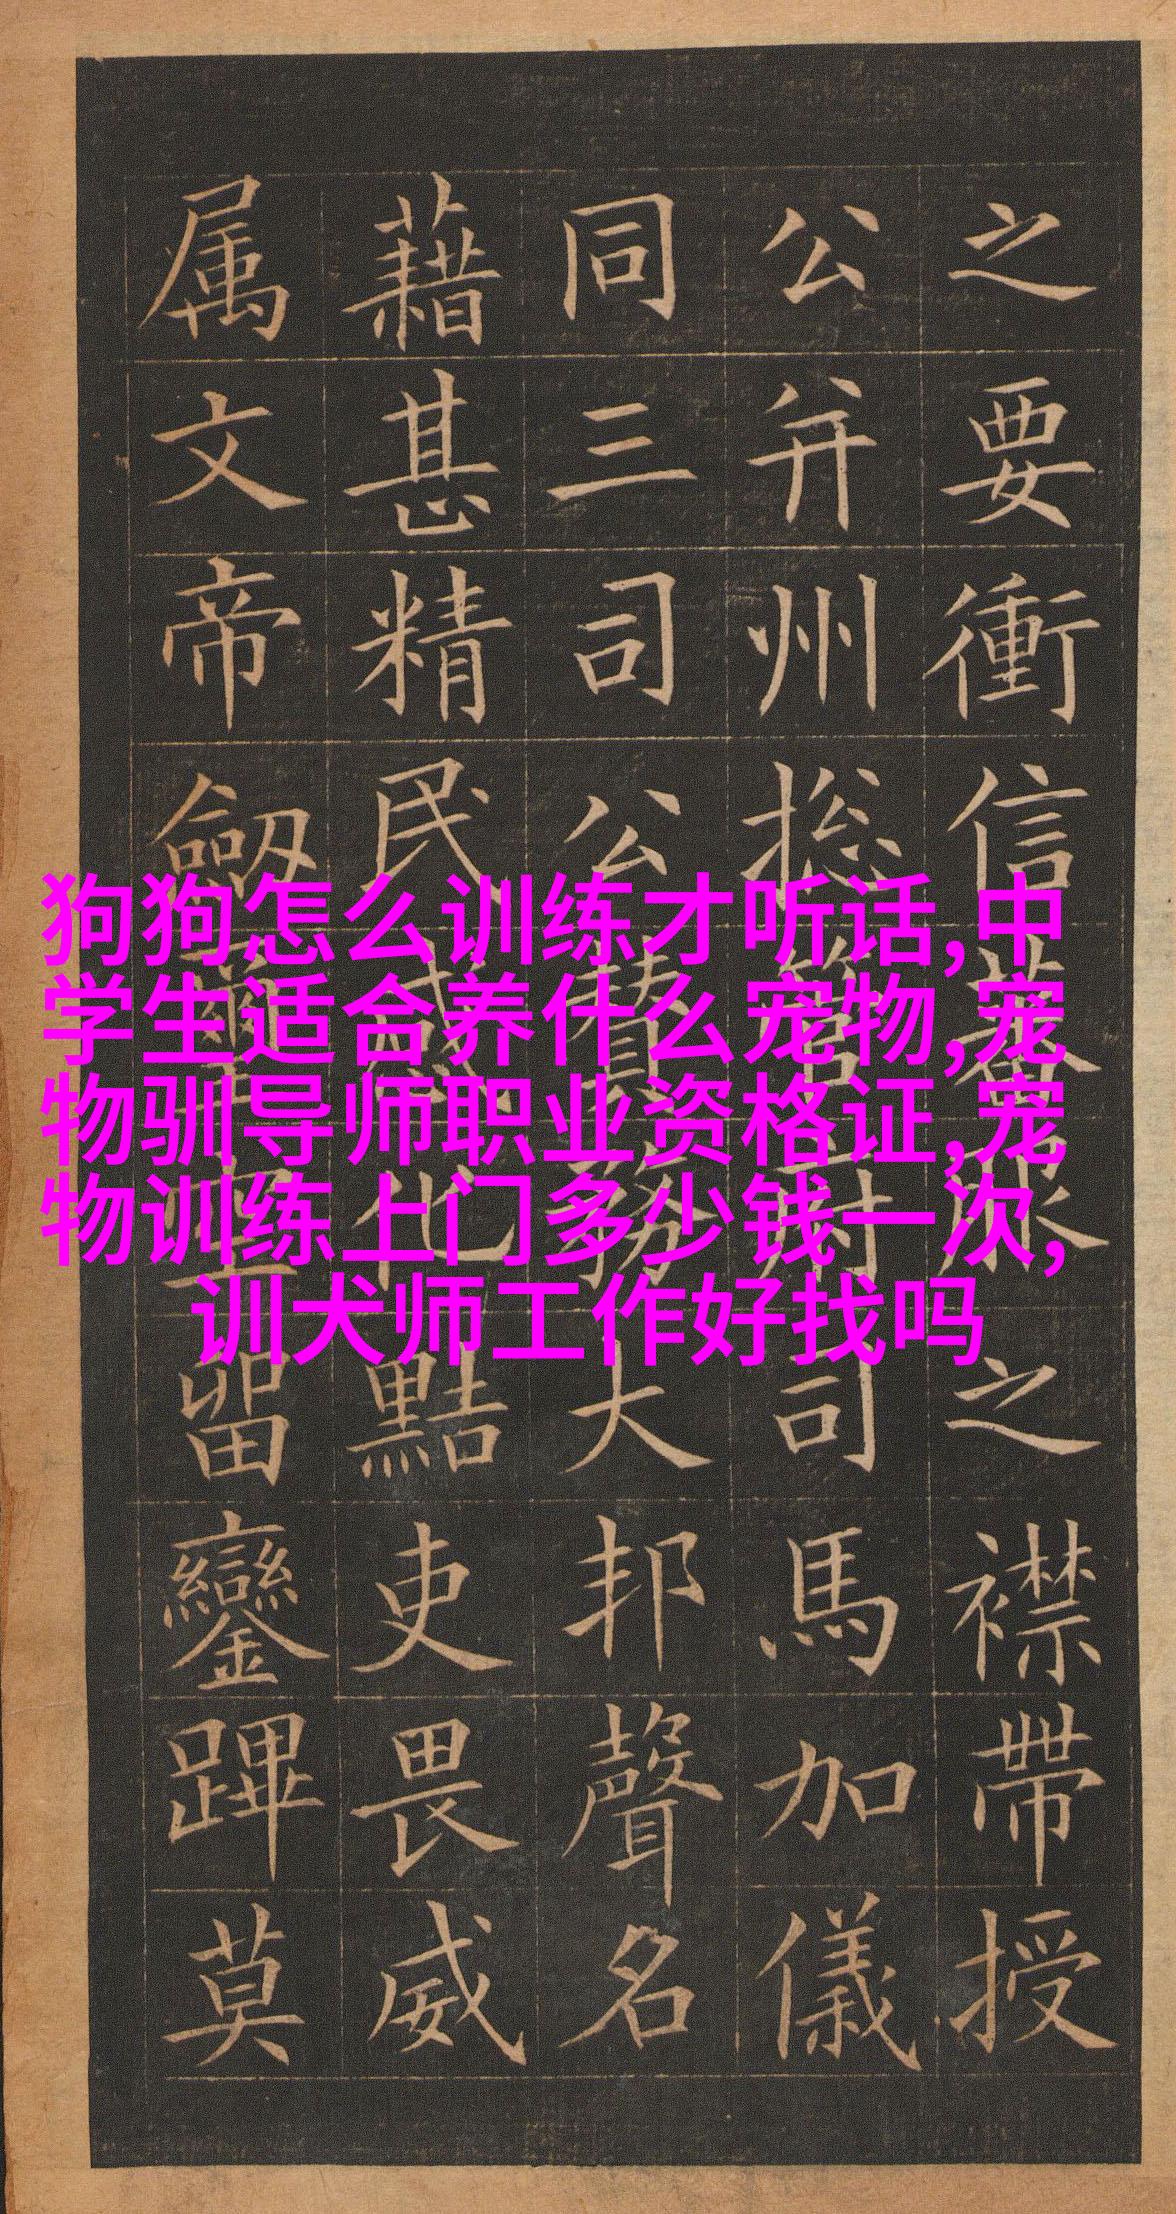 狗狗怎么训练才听话,中
学生适合养什么宠物,宠
物驯导师职业资格证,宠
物训练上门多少钱一次,
训犬师工作好找吗
之要衝信蕃服之襟帶授
公并州捴管府司馬加儀
同三司公贊務大邦聲名
藉甚精民感化黠吏畏威
属文帝劒璽空留鑾蹕莫